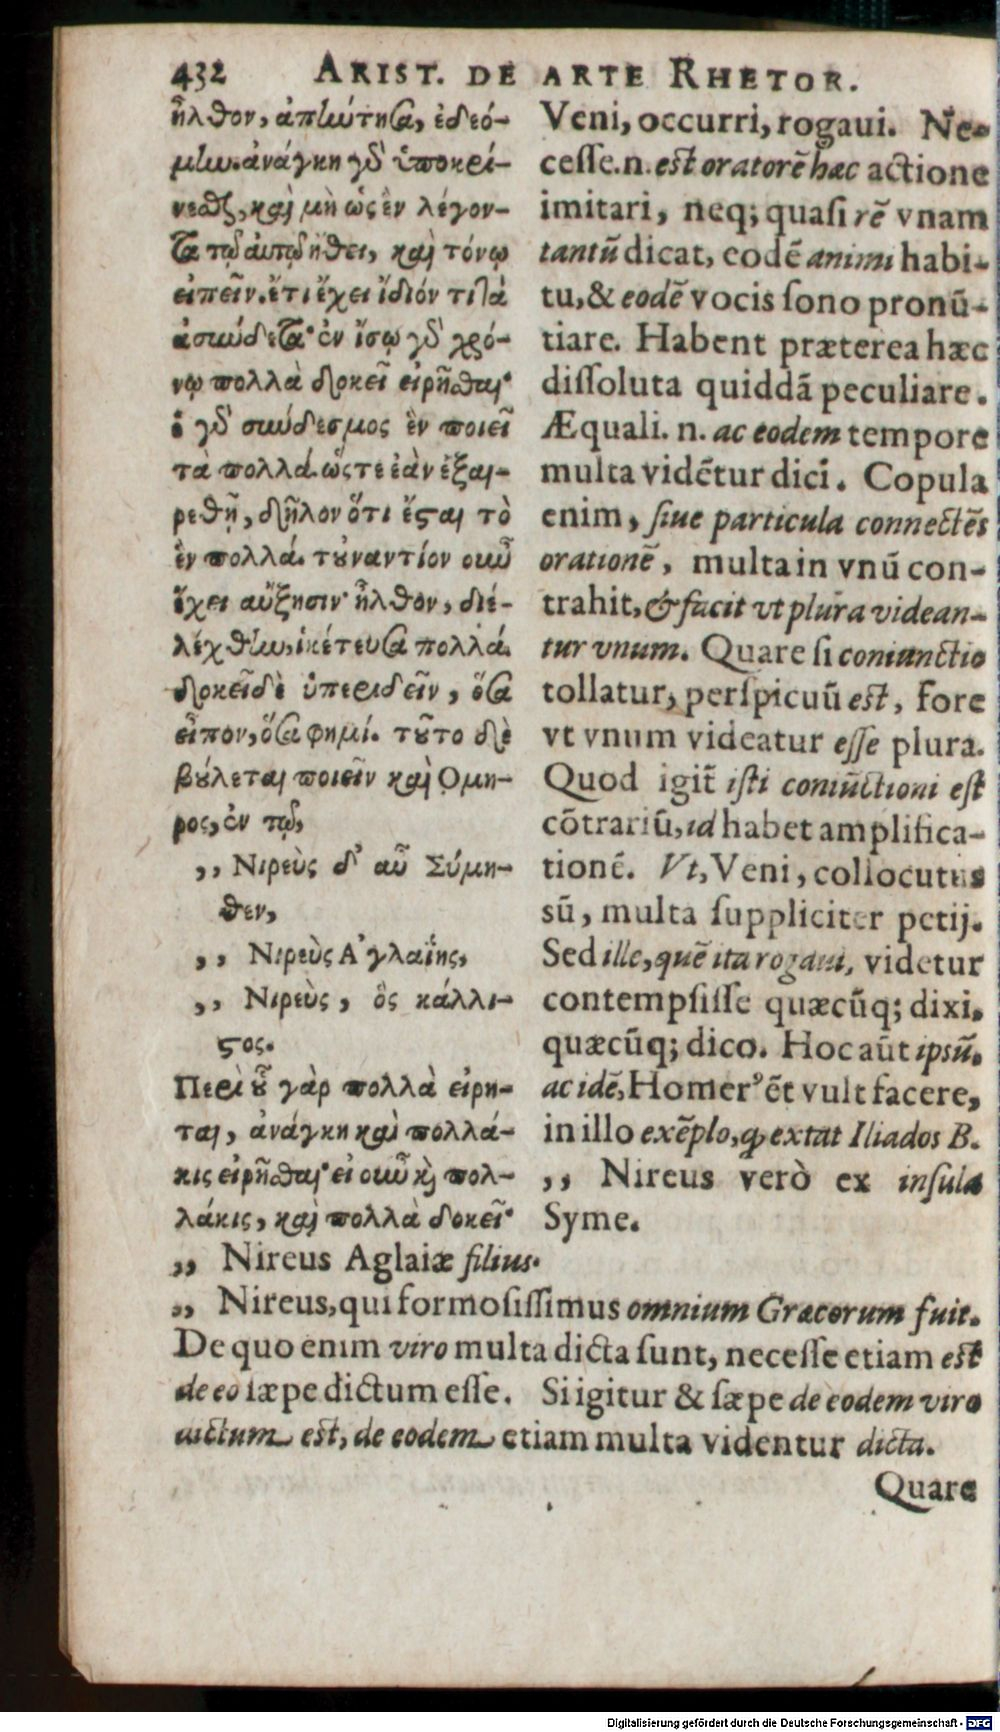 432 ARIST. DE ARTE RHETOR.
ἦλθον, ἀπήντησα, ἐδεό-
μην. ἀνάγκη γὰρ ὑποκρί-
νεσθαι, καὶ μὴ ὡς ἓν λέγον-
τα τῷ αὐτῷ ἤθει, καὶ τόνῳ
εἰπεῖν. ἔτι ἔχει ἴδιόν τι τὰ
ἀσύνδετα· ἐν ἴσῳ γὰρ χρό-
νῳ πολλὰ δοκεῖ εἰρῆσθαι·
ὁ γὰρ σύνδεσμος ἓν ποιεῖ
τὰ πολλά. ὥστε ἐὰν ἐξαι-
ρεθῇ, δῆλον ὅτι ἔσται τὸ
ἓν πολλά. τοὐναντίον οὖν
ἔχει αὔξησιν· ἦλθον, διε-
λέχθην, ἱκέτευσα πολλά.
δοκεῖ δὲ ὑπεριδεῖν, ὅσα
εἶπον, ὅσα φημί. τοῦτο δὲ
βούλεται ποιεῖν καὶ Ομη-
ρος, ἐν τῷ,
,, Νιρεὺς δ' αὖ Σύμη-
θεν,
,, Νιρεὺς Ἀγλαΐης,
,, Νιρεὺς, ὃς κάλλι-
στος.
Περὶ οὗ γὰρ πολλὰ εἴρη-
ται, ἀνάγκη καὶ πολλά-
κις εἰρῆσθαι· εἰ οὖν καὶ πολ-
λάκις, καὶ πολλὰ δοκεῖ·
Veni, occurri, rogaui. Ne-
cesse.n. est oratorē hæc actione
imitari, neq; quasi rē vnam
tantū dicat, eodē animi habi-
tu, & eodē vocis sono pronū-
tiare. Habent præterea hæc
dissoluta quiddā peculiare.
Æquali. n. ac eodem tempore
multa vidētur dici. Copula
enim, siue particula connectēs
orationē, multa in vnū con-
trahit, & facit vt plura videan-
tur vnum. Quare si coniunctio
tollatur, perspicuū est, fore
vt vnum videatur esse plura.
Quod igit̃ isti coniūctioni est
cōtrariū, id habet amplifica-
tionē. Vt, Veni, collocutus
sū, multa suppliciter petij.
Sed ille, quē ita rogaui, videtur
contempsisse quæcūq; dixi,
quæcūq; dico. Hoc aūt ipsū,
ac idē, Homer⁹ ēt vult facere,
in illo exēplo, q̃ extat Iliados B.
,, Nireus verò ex insula
Syme.
,, Nireus Aglaiæ filius.
,, Nireus, qui formosissimus omnium Græcorum fuit.
De quo enim viro multa dicta sunt, necesse etiam est
de eo sæpe dictum esse. Si igitur & sæpe de eodem viro
dictum est, de eodem etiam multa videntur dicta.
Quare
Digitalisierung gefördert durch die Deutsche Forschungsgemeinschaft - DFG